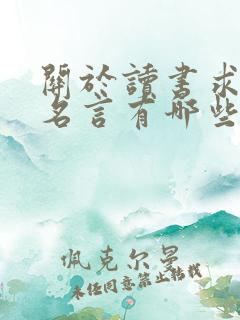 關於讀書求
名言有哪些
佩克尔曼
未经同意禁止转载